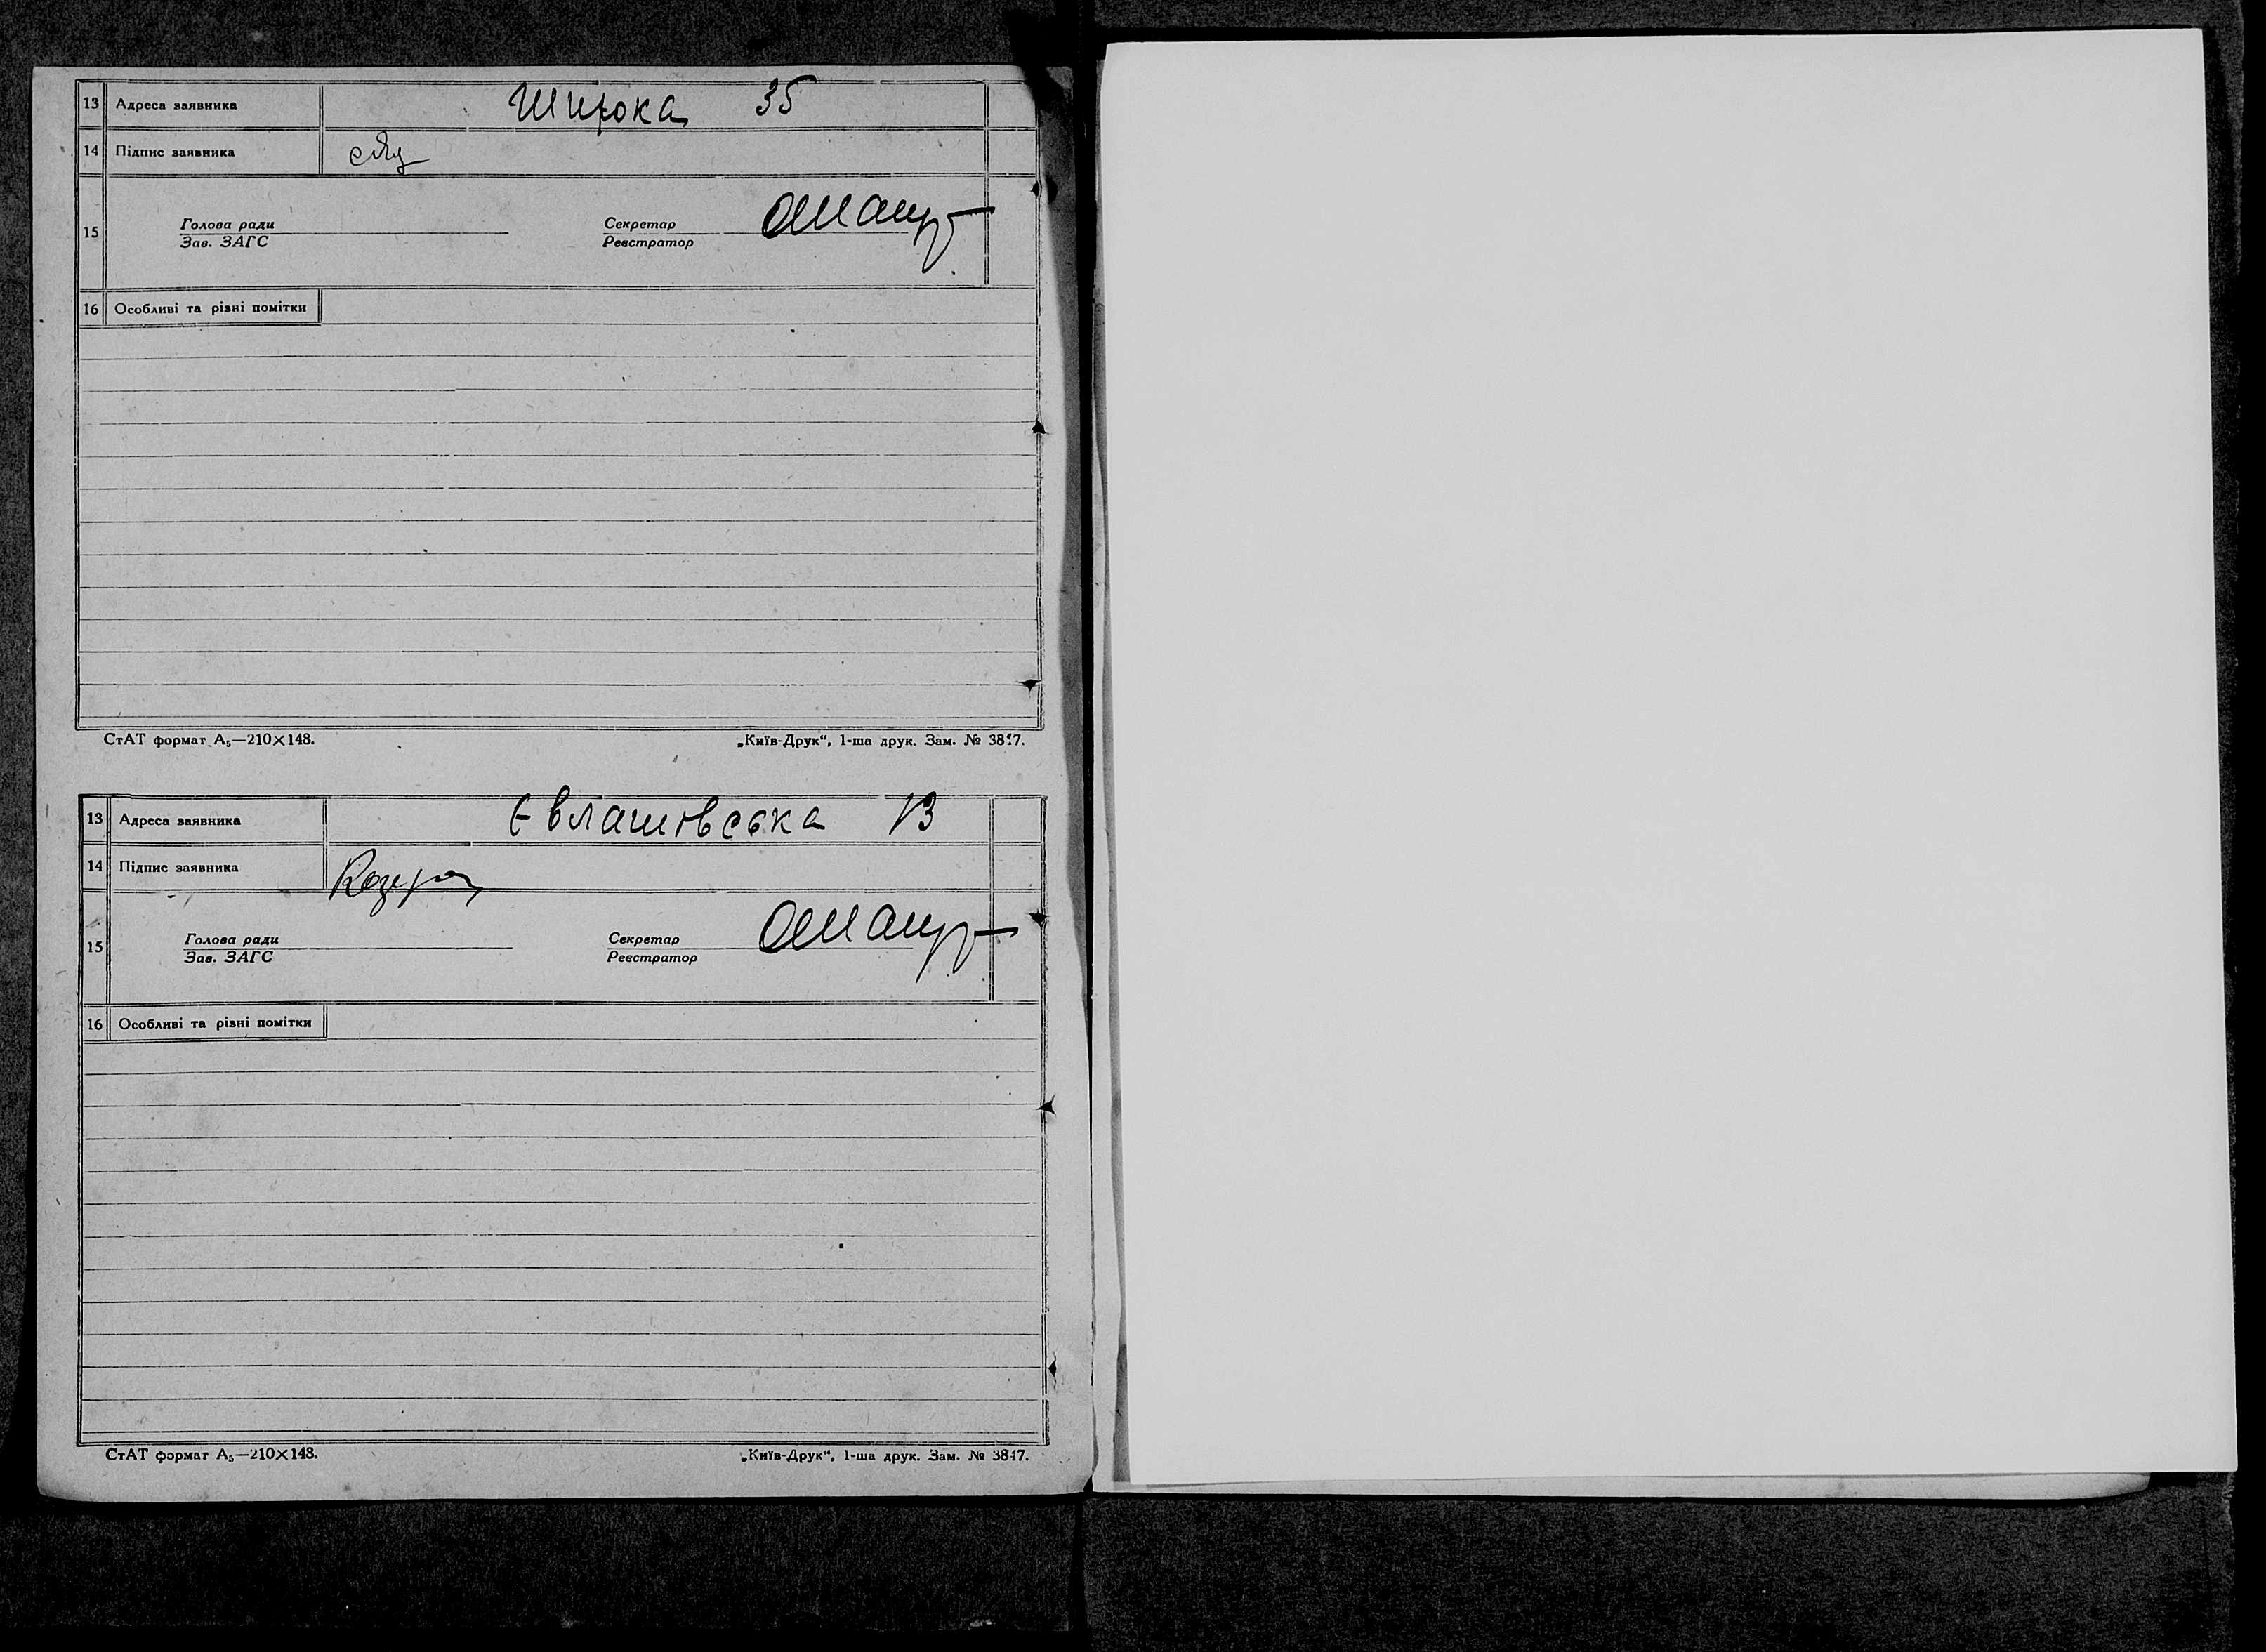 13 Адреса заявника Широка 35
14 Підпис заявника
15 Голова ради Секретар
Зав. ЗАГС Реєстратор
16 Особливі та різні помітки
СтАТ формат А₅—210×148. „Київ-Друк“, 1-ша друк. Зам. №
13 Адреса заявника Євлашовська 13
14 Підпис заявника
15 Голова ради Секретар
Зав. ЗАГС Реєстратор
16 Особливі та різні помітки
СтАТ формат А₅—210×148. „Київ-Друк“, 1-ша друк. Зам. №